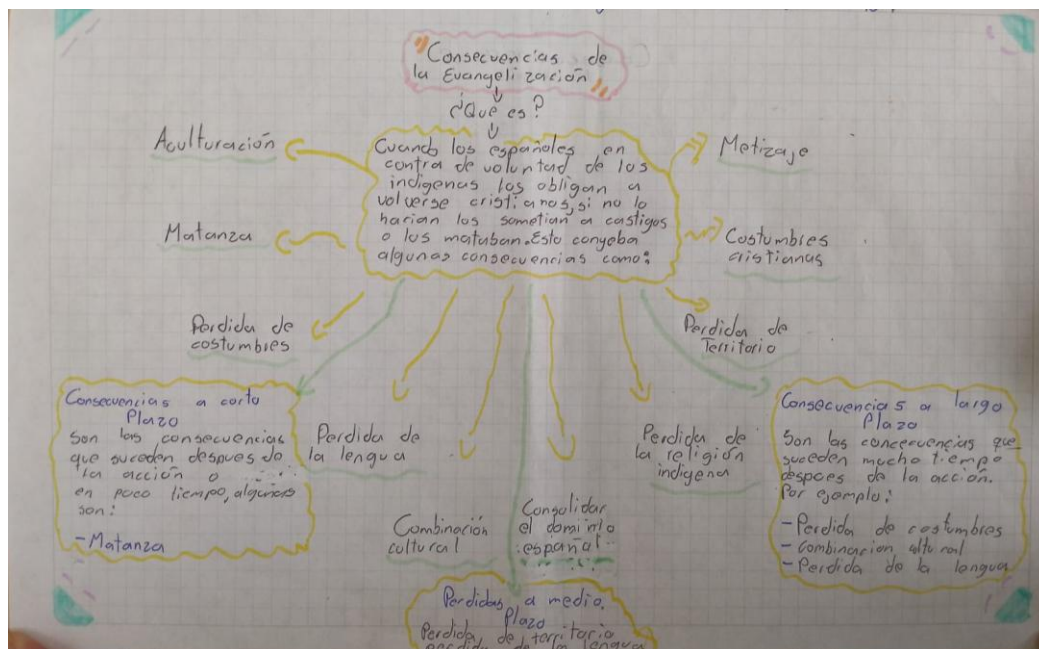 "Consecuencias de
la Evangelización"
¿Qué es?
Cuando los españoles en
contra de voluntad de los
indigenas los obligan a
volverse cristianos, si no lo
harian los sometian a castigos
o los mataban. Esto conyeba
algunas consecuencias como:
Aculturación
Metizaje
Matanza
Costumbres
cristianas
Perdida de
costumbres
Perdida de
Territorio
Perdida de
la lengua
Perdida de
la religión
indigena
Combinación
cultural
Consolidar
el dominio
español
Consecuencias a corto
Plazo
Son las consecuencias
que suceden despues de
la acción o
en poco tiempo, algunas
son:
-Matanza
Consecuencias a largo
Plazo
Son las concecuencias que
suceden mucho tiempo
despoes de la acción.
Por ejemplo:
-Perdida de costumbres
-Combinacion cltural
-Perdida de la lengua
Perdidas a medio.
Plazo
Perdida de territorio
perdida de la lengua